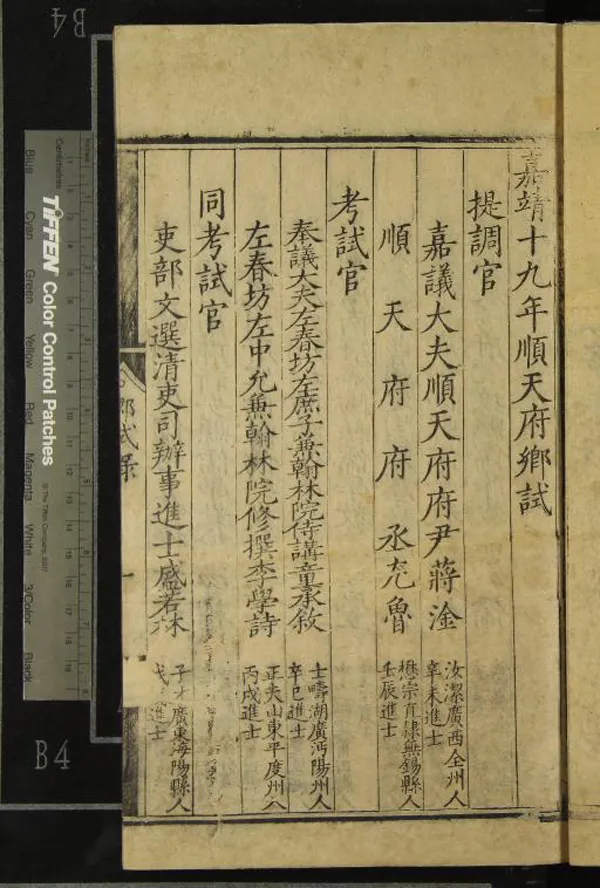 嘉靖十九年順天府鄉試
提調官
嘉議大夫順天府府尹蔣淦
汝潔廣西全州人
辛未進士
順天府府丞尣魯
懋宗直隸無錫縣人
壬辰進士
考試官
奉議大夫左春坊左庶子兼翰林院侍講童承敘
士疇湖廣沔陽州人
辛巳進士
左春坊左中允兼翰林院修撰李學詩
正夫山東平度州人
丙戌進士
同考試官
吏部文選清吏司辦事進士盛若林
子才廣東海陽縣人
戊 進士
試錄
一
B4
B4
TIFFEN Color Control Patches
© The Tiffen Company, 2007
Centimetres
Blue
Cyan
Green
Yellow
Red
Magenta
White
3/Color
Black